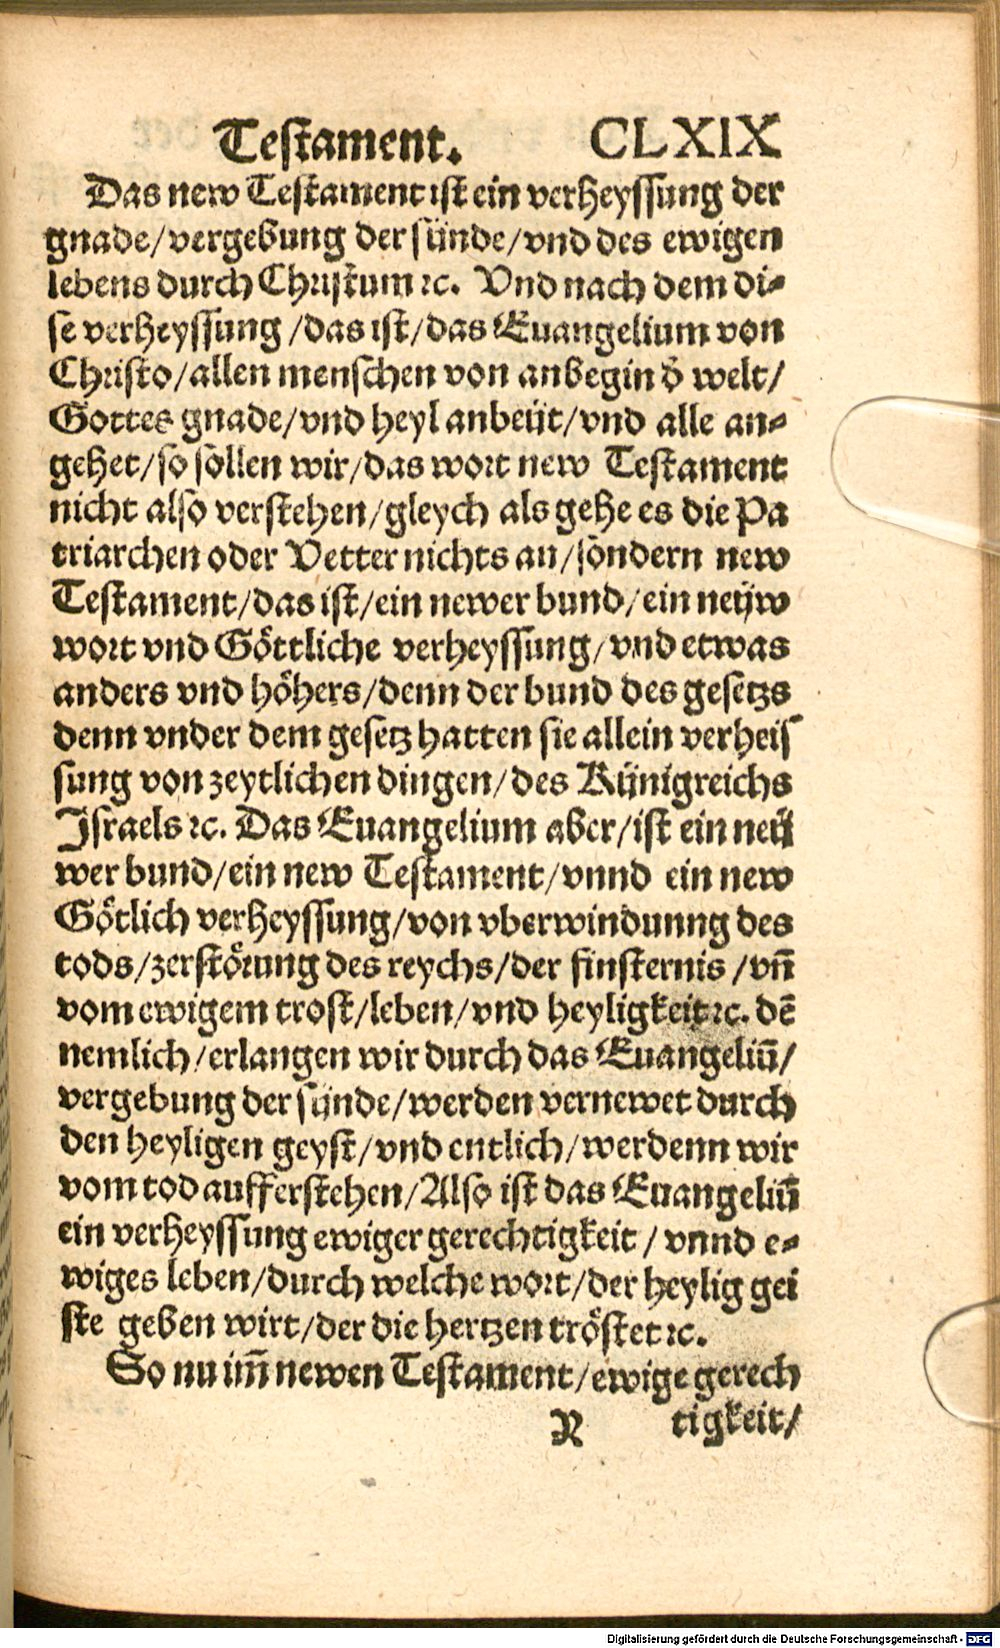 Testament. CLXIX
Das new Testament ist ein verheyssung der
gnade/vergebung der sünde/vnd des ewigen
lebens durch Christum ꝛc. Vnd nach dem di⸗
se verheyssung /das ist/das Euangelium von
Christo/allen menschen von anbegin d̕ welt/
Gottes gnade/vnd heyl anbeüt/vnd alle an⸗
gehet/so söllen wir/das wort new Testament
nicht also verstehen/gleych als gehe es die Pa
triarchen oder Vetter nichts an/sondern new
Testament/das ist/ein newer bund/ein neüw
wort vnd Göttliche verheyssung/vnd etwas
anders vnd höhers/denn der bund des gesetzs
denn vnder dem gesetz hatten sie allein verheis
sung von zeytlichen dingen/des Künigreichs
Israels ꝛc. Das Euangelium aber/ist ein neü
wer bund/ein new Testament/vnnd ein new
Götlich verheyssung/von vberwindunng des
tods/zerstörung des reychs/der finsternis /vñ
vom ewigem trost/leben/vnd heyligkeit ꝛc. dē
nemlich/erlangen wir durch das Euangeliū/
vergebung der sünde/werden vernewet durch
den heyligen geyst/vnd entlich/werdenn wir
vom tod aufferstehen/Also ist das Euangeliū
ein verheyssung ewiger gerechtigkeit / vnnd e⸗
wiges leben/durch welche wort/der heylig gei
ste geben wirt/der die hertzen tröstet ꝛc.
So nu im̄ newen Testament/ewige gerech
Y tigkeit/
Digitalisierung gefördert durch die Deutsche Forschungsgemeinschaft - DFG